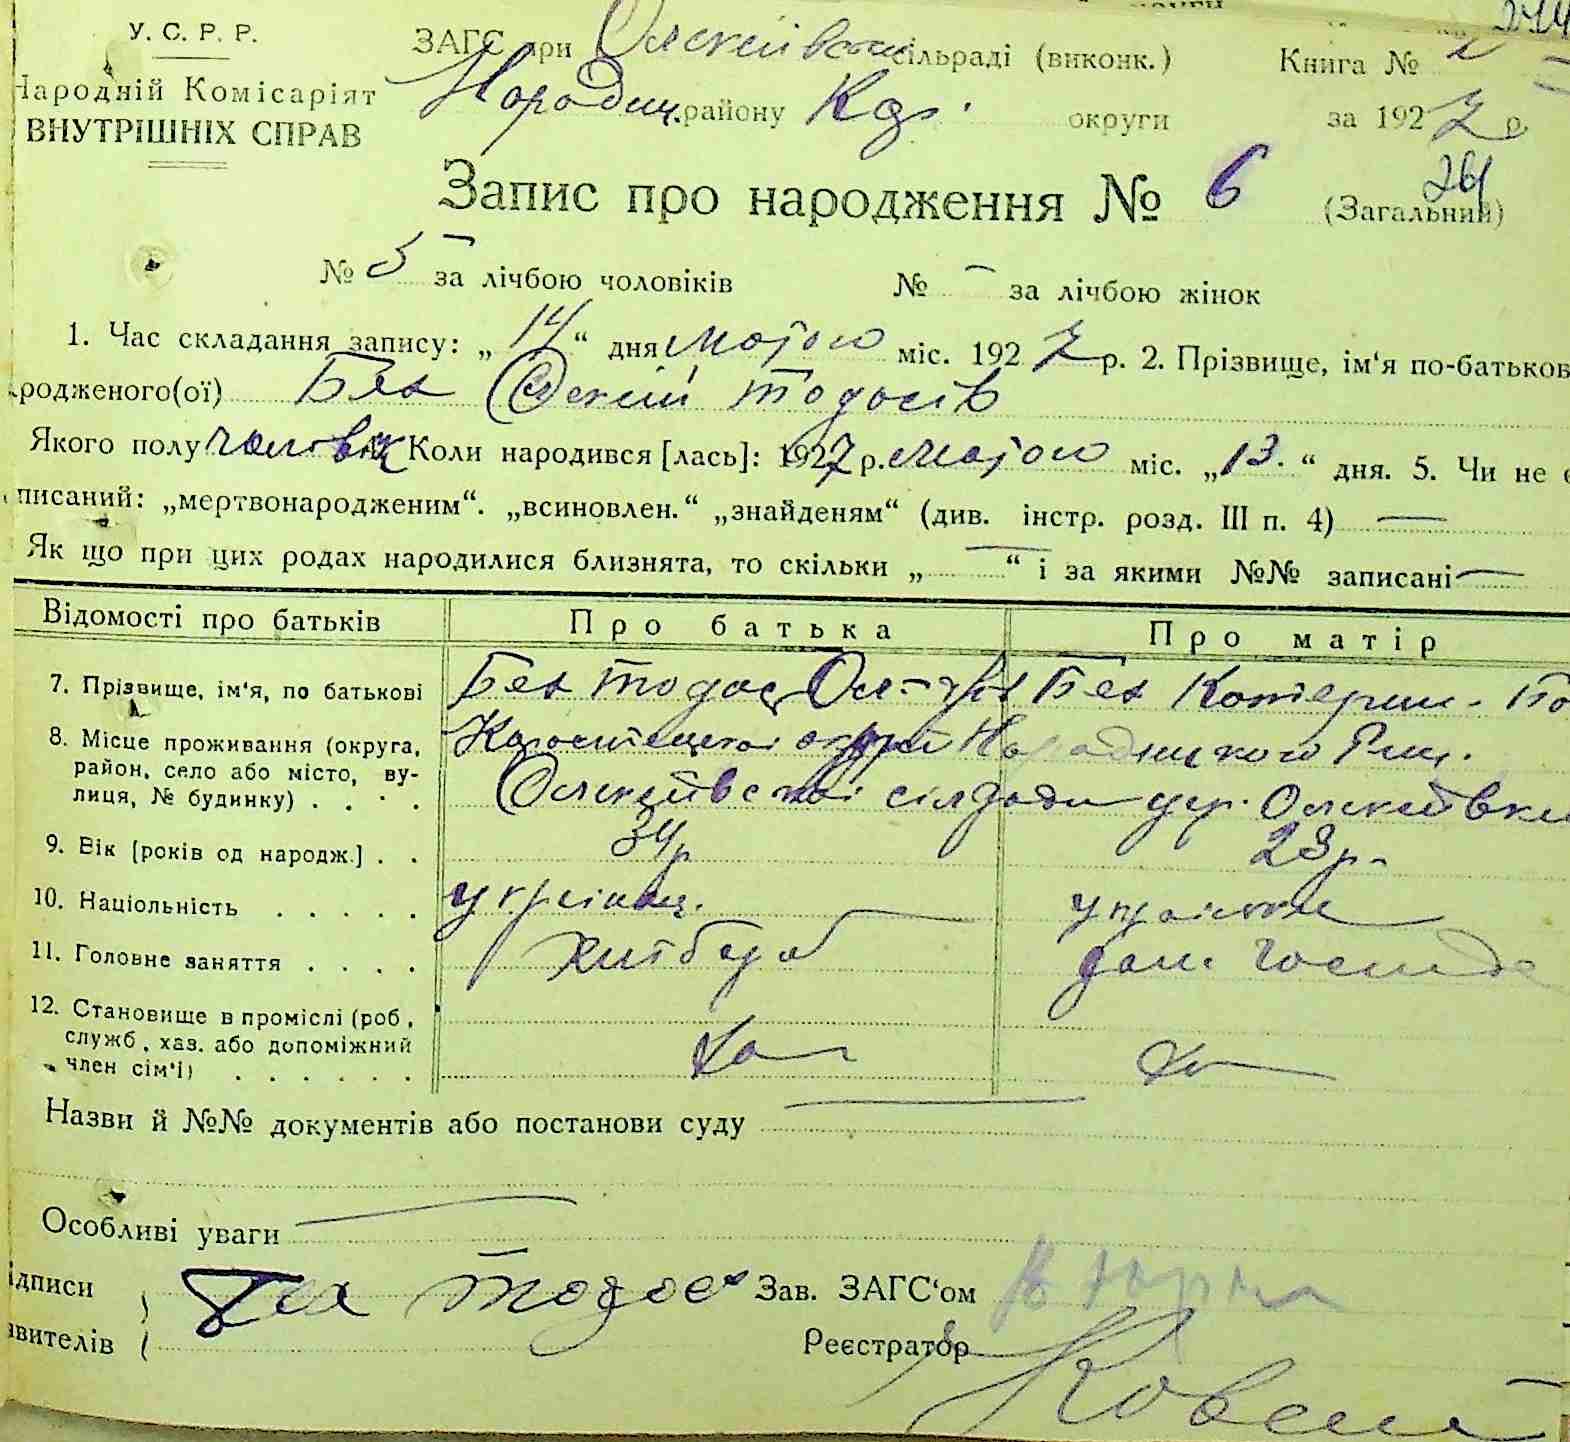 У. С. Р. Р.
Народній Комісаріят
ВНУТРІШНІХ СПРАВ
ЗАГС при Олексіївській сільраді (виконк.)
Народиц. району Кор. округи
Книга №
за 1927 р.
Запис про народження № 6 (Загальний)
№ 5 за лічбою чоловіків № – за лічбою жінок
1. Час складання запису: „14“ дня лютого міс. 1927 р. 2. Прізвище, ім‘я по-батькові
народженого(ої) Бех Олексій Тодосів
Якого полу чоловік Коли народився [лась]: 1927 р. лютого міс. „13.“ дня. 5. Чи не є
писаний: „мертвонародженим“. „всиновлен.“ „знайденям“ (див. інстр. розд. III п. 4) —
Як що при цих родах народилися близнята, то скільки „—“ і за якими №№ записані —
Відомості про батьків
Про батька
Про матір
7. Прізвище, ім‘я, по батькові
Бех Тодос
Бех Катерин.
8. Місце проживання (округа,
район, село або місто, ву-
лиця, № будинку) . . . .
Коростенської округи Народицького Рай.
Олексіївської сілради дер. Олексіївки
9. Вік [років од народж.] . .
34 р
23 р.
10. Націольність . . . . .
українц.
українка
11. Головне заняття . . . .
хлібороб
дом. господ
12. Становище в проміслі (роб.,
служб., хаз. або допоміжний
член сім‘ї) . . . . . .
Назви й №№ документів або постанови суду —
Особливі уваги —
ідписи
явителів
Бех Тодос
Зав. ЗАГС‘ом
Реєстратор